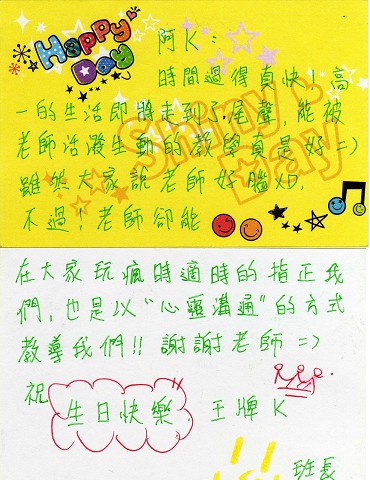 Happy Day
阿K：
時間過得真快！高
一的生活即將走到了尾聲，能被
老師活潑生動的教學真是好=)
雖然大家說老師好腦XD,
不過！老師卻能
Shiny Day
在大家玩瘋時適時的指正我
們，也是以“心靈溝通”的方式
教導我們!! 謝謝老師=)
祝 生日快樂. 王牌K
班長